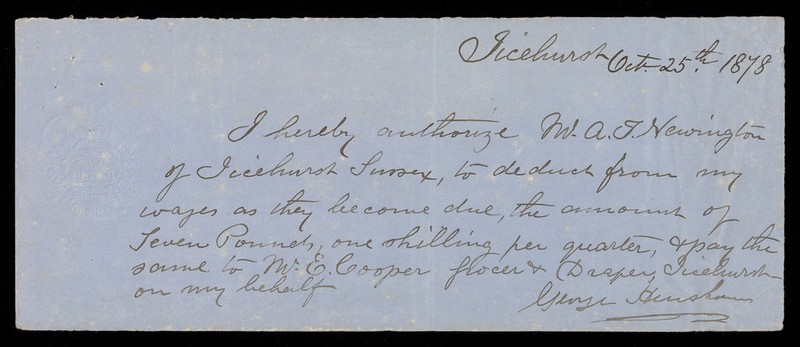 Ticehurst Oct. 25th 1878
I hereby authorize Mr. A. T. Newington
of Ticehurst Sussex, to deduct from my
wages as they become due, the amount of
Seven Pounds, one shilling per quarter, & pay the
same to Mr. E. Cooper Grocer & Draper, Ticehurst
on my behalf
George Henshaw